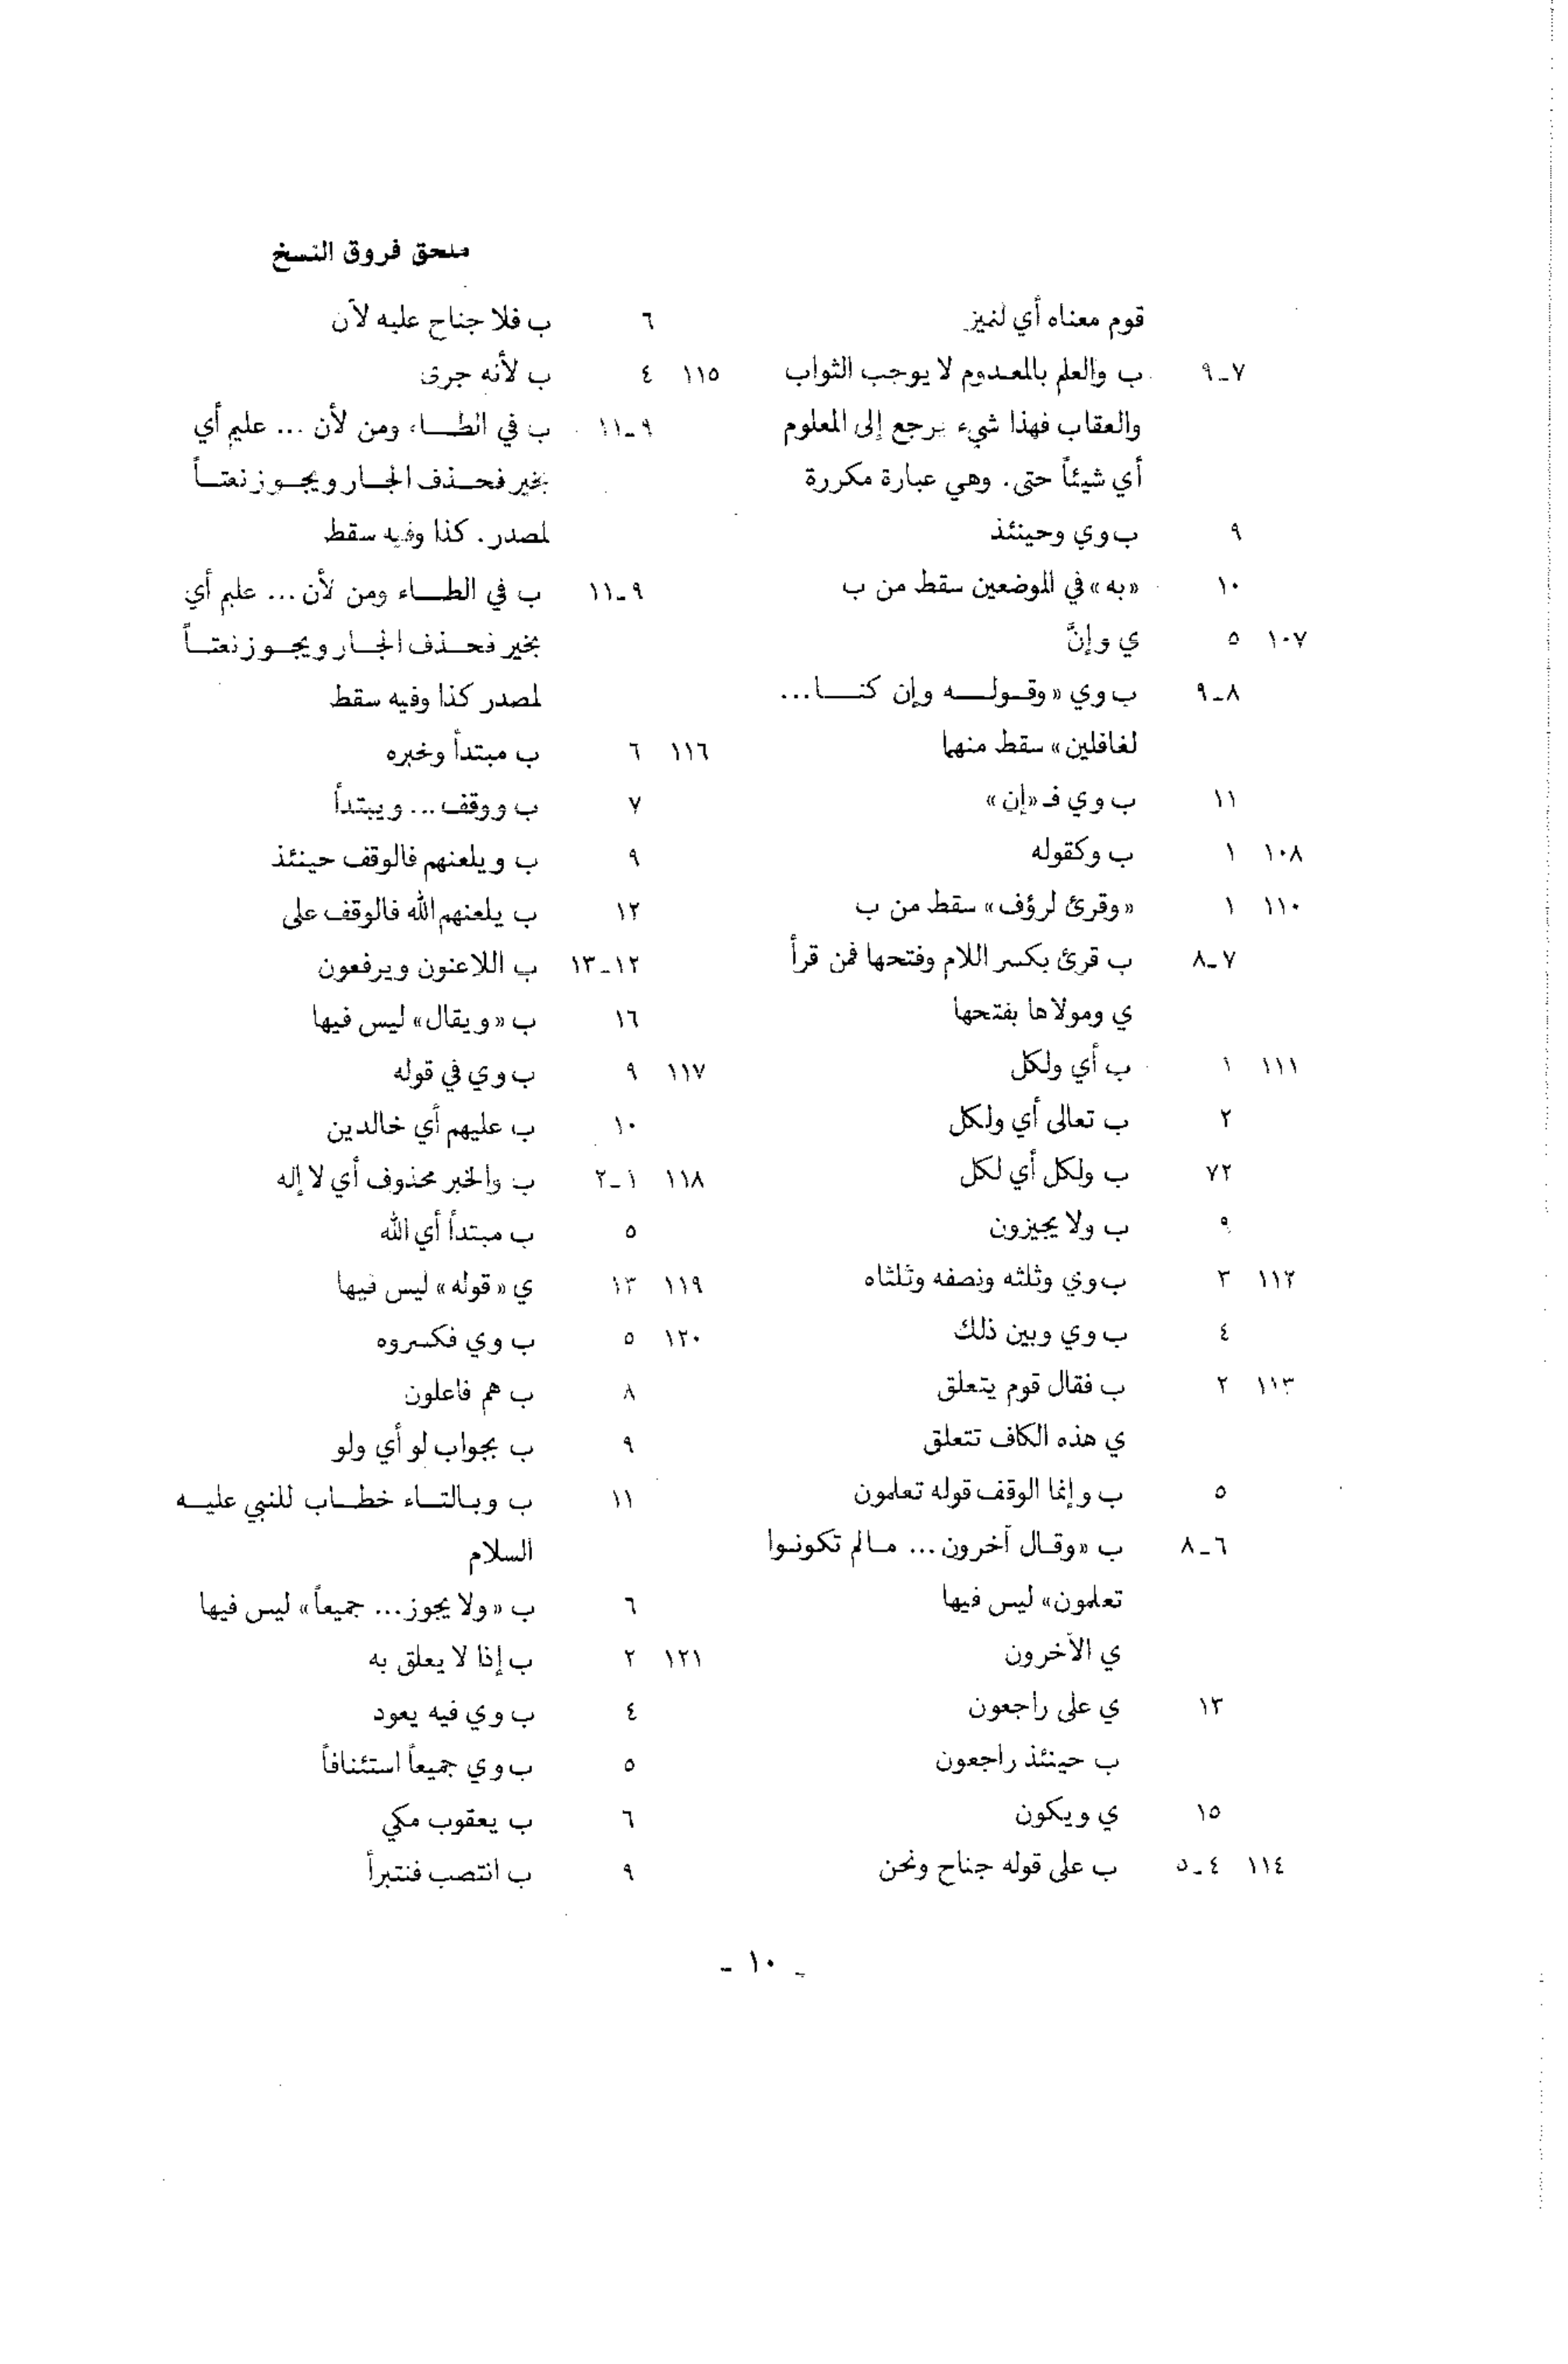 ملحق فروق النسخ
قوم معناه أي لنميز
٧ـ٩ ب والعلم بالمعدوم لا يوجب الثواب
والعقاب فهذا شيء يرجع إلى المعلوم
أي شيئاً حتى. وهي عبارة مكررة
٩ ب وي وحينئذ
١٠ «به» في الموضعين سقط من ب
١٠٧ ٥ ي وإنَّ
٨ـ٩ ب وي «وقولـه وإن كنـا...
لغافلين» سقط منها
١١ ب وي فـ «إن»
١٠٨ ١ ب وكقوله
١١٠ ١ «وقرئ لرؤف» سقط من ب
٧ـ٨ ب قرئ بكسر اللام وفتحها فمن قرأ
ي ومولاها بفتحها
١١١ ١ ب أي ولكل
٢ ب تعالى أي ولكل
٧٢ ب ولكل أي لكل
٩ ب ولا يجيزون
١١٢ ٣ ب وي وثلثه ونصفه وثلثاه
٤ ب وي وبين ذلك
١١٣ ٢ ب فقال قوم يتعلق
ي هذه الكاف تتعلق
٥ ب وإنما الوقف قوله تعلمون
٦ـ٨ ب «وقال آخرون... مالم تكونوا
تعلمون» ليس فيها
ي الآخرون
١٣ ي على راجعون
ب حينئذ راجعون
١٥ ي ويكون
١١٤ ٤ـ٥ ب على قوله جناح ونحن
٦ ب فلا جناح عليه لأن
١١٥ ٤ ب لأنه جرى
٩ـ١١ ب في الطـاء ومن لأن ... عليم أي
بخير فحـذف الجـار ويجـوز نعتـاً
لمصدر. كذا وفيه سقط
٩ـ١١ ب في الطـاء ومن لأن ... عليم أي
بخير فحـذف الجـار ويجـوز نعتـاً
لمصدر كذا وفيه سقط
١١٦ ٦ ب مبتدأ وخبره
٧ ب ووقف ... ويبتدأ
٩ ب ويلعنهم فالوقف حينئذ
١٢ ب يلعنهم الله فالوقف على
١٢ـ١٣ ب اللاعنون ويرفعون
١٦ ب «ويقال» ليس فيها
١١٧ ٩ ب وي في قوله
١٠ ب عليهم أي خالدين
١١٨ ١ـ٢ ب والخبر محذوف أي لا إله
٥ ب مبتدأ أي الله
١١٩ ١٣ ي «قوله» ليس فيها
١٢٠ ٥ ب وي فكسروه
٨ ب هم فاعلون
٩ ب بجواب لو أي ولو
١١ ب وبالتاء خطاب للنبي عليه
السلام
٦ ب «ولا يجوز... جميعاً» ليس فيها
١٢١ ٢ ب إذا لا يعلق به
٤ ب وي فيه يعود
٥ ب وي جميعاً استئنافاً
٦ ب يعقوب مكي
٩ ب انتصب فنتبرأ
ـ ١٠ ـ